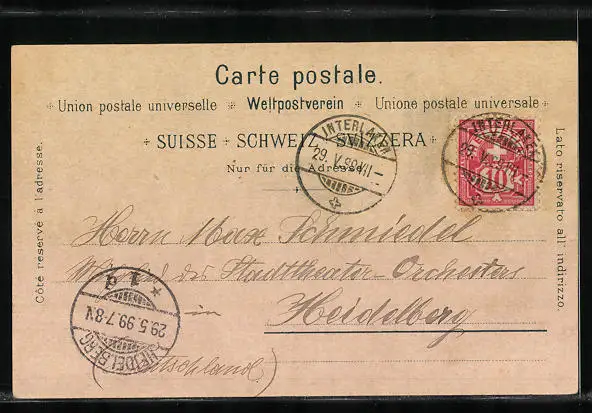 Carte postale.
Union postale universelle Weltpostverein Unione postale universale
SUISSE SCHWEIZ SVIZZERA
Nur für die Adresse
Côté réservé à l'adresse.
Lato riservato all' indirizzo.
INTERLAKEN
29. V. 99. VII
INTERLAKEN
29. V. 99. VII
10
Herrn Max Schmiedel
Mitglied des Stadttheater-Orchesters
in
Heidelberg
(Deutschland.)
HEIDELBERG
29.5.99.7-8N
* 1 g